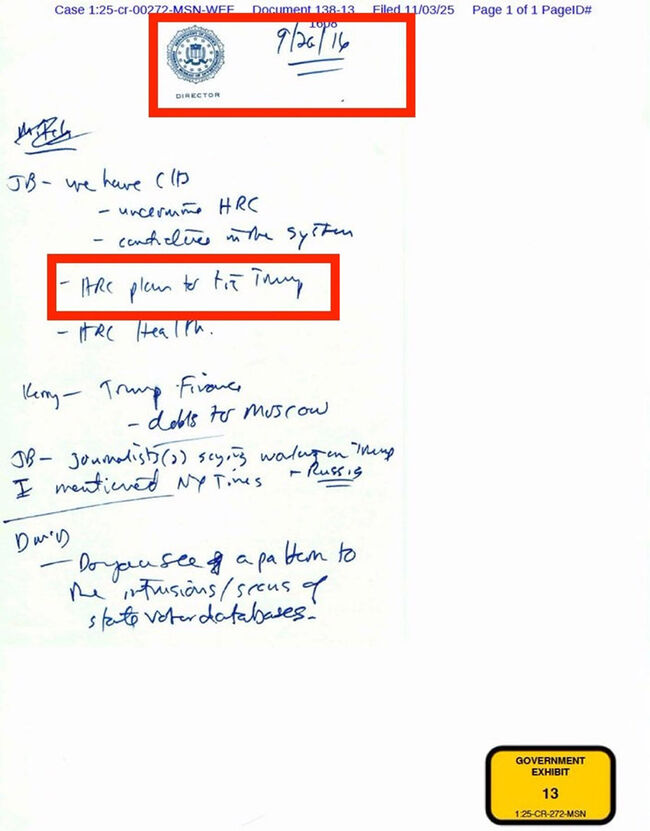 Case 1:25-cr-00272-MSN-WEF Document 138-13 Filed 11/03/25 Page 1 of 1 PageID#
1608
9/26/16
DIRECTOR
JB - we have
- HRC
- candidates in the system
- HRC plan to tie Trump
- HRC Health.
Kerry - Trump Finance
- debts to Moscow
JB - journalist(s) saying working on Trump
I mentioned NY Times - Russia
- Do you see a pattern to
the intrusions/scans of
state voter databases.
GOVERNMENT
EXHIBIT
13
1:25-CR-272-MSN